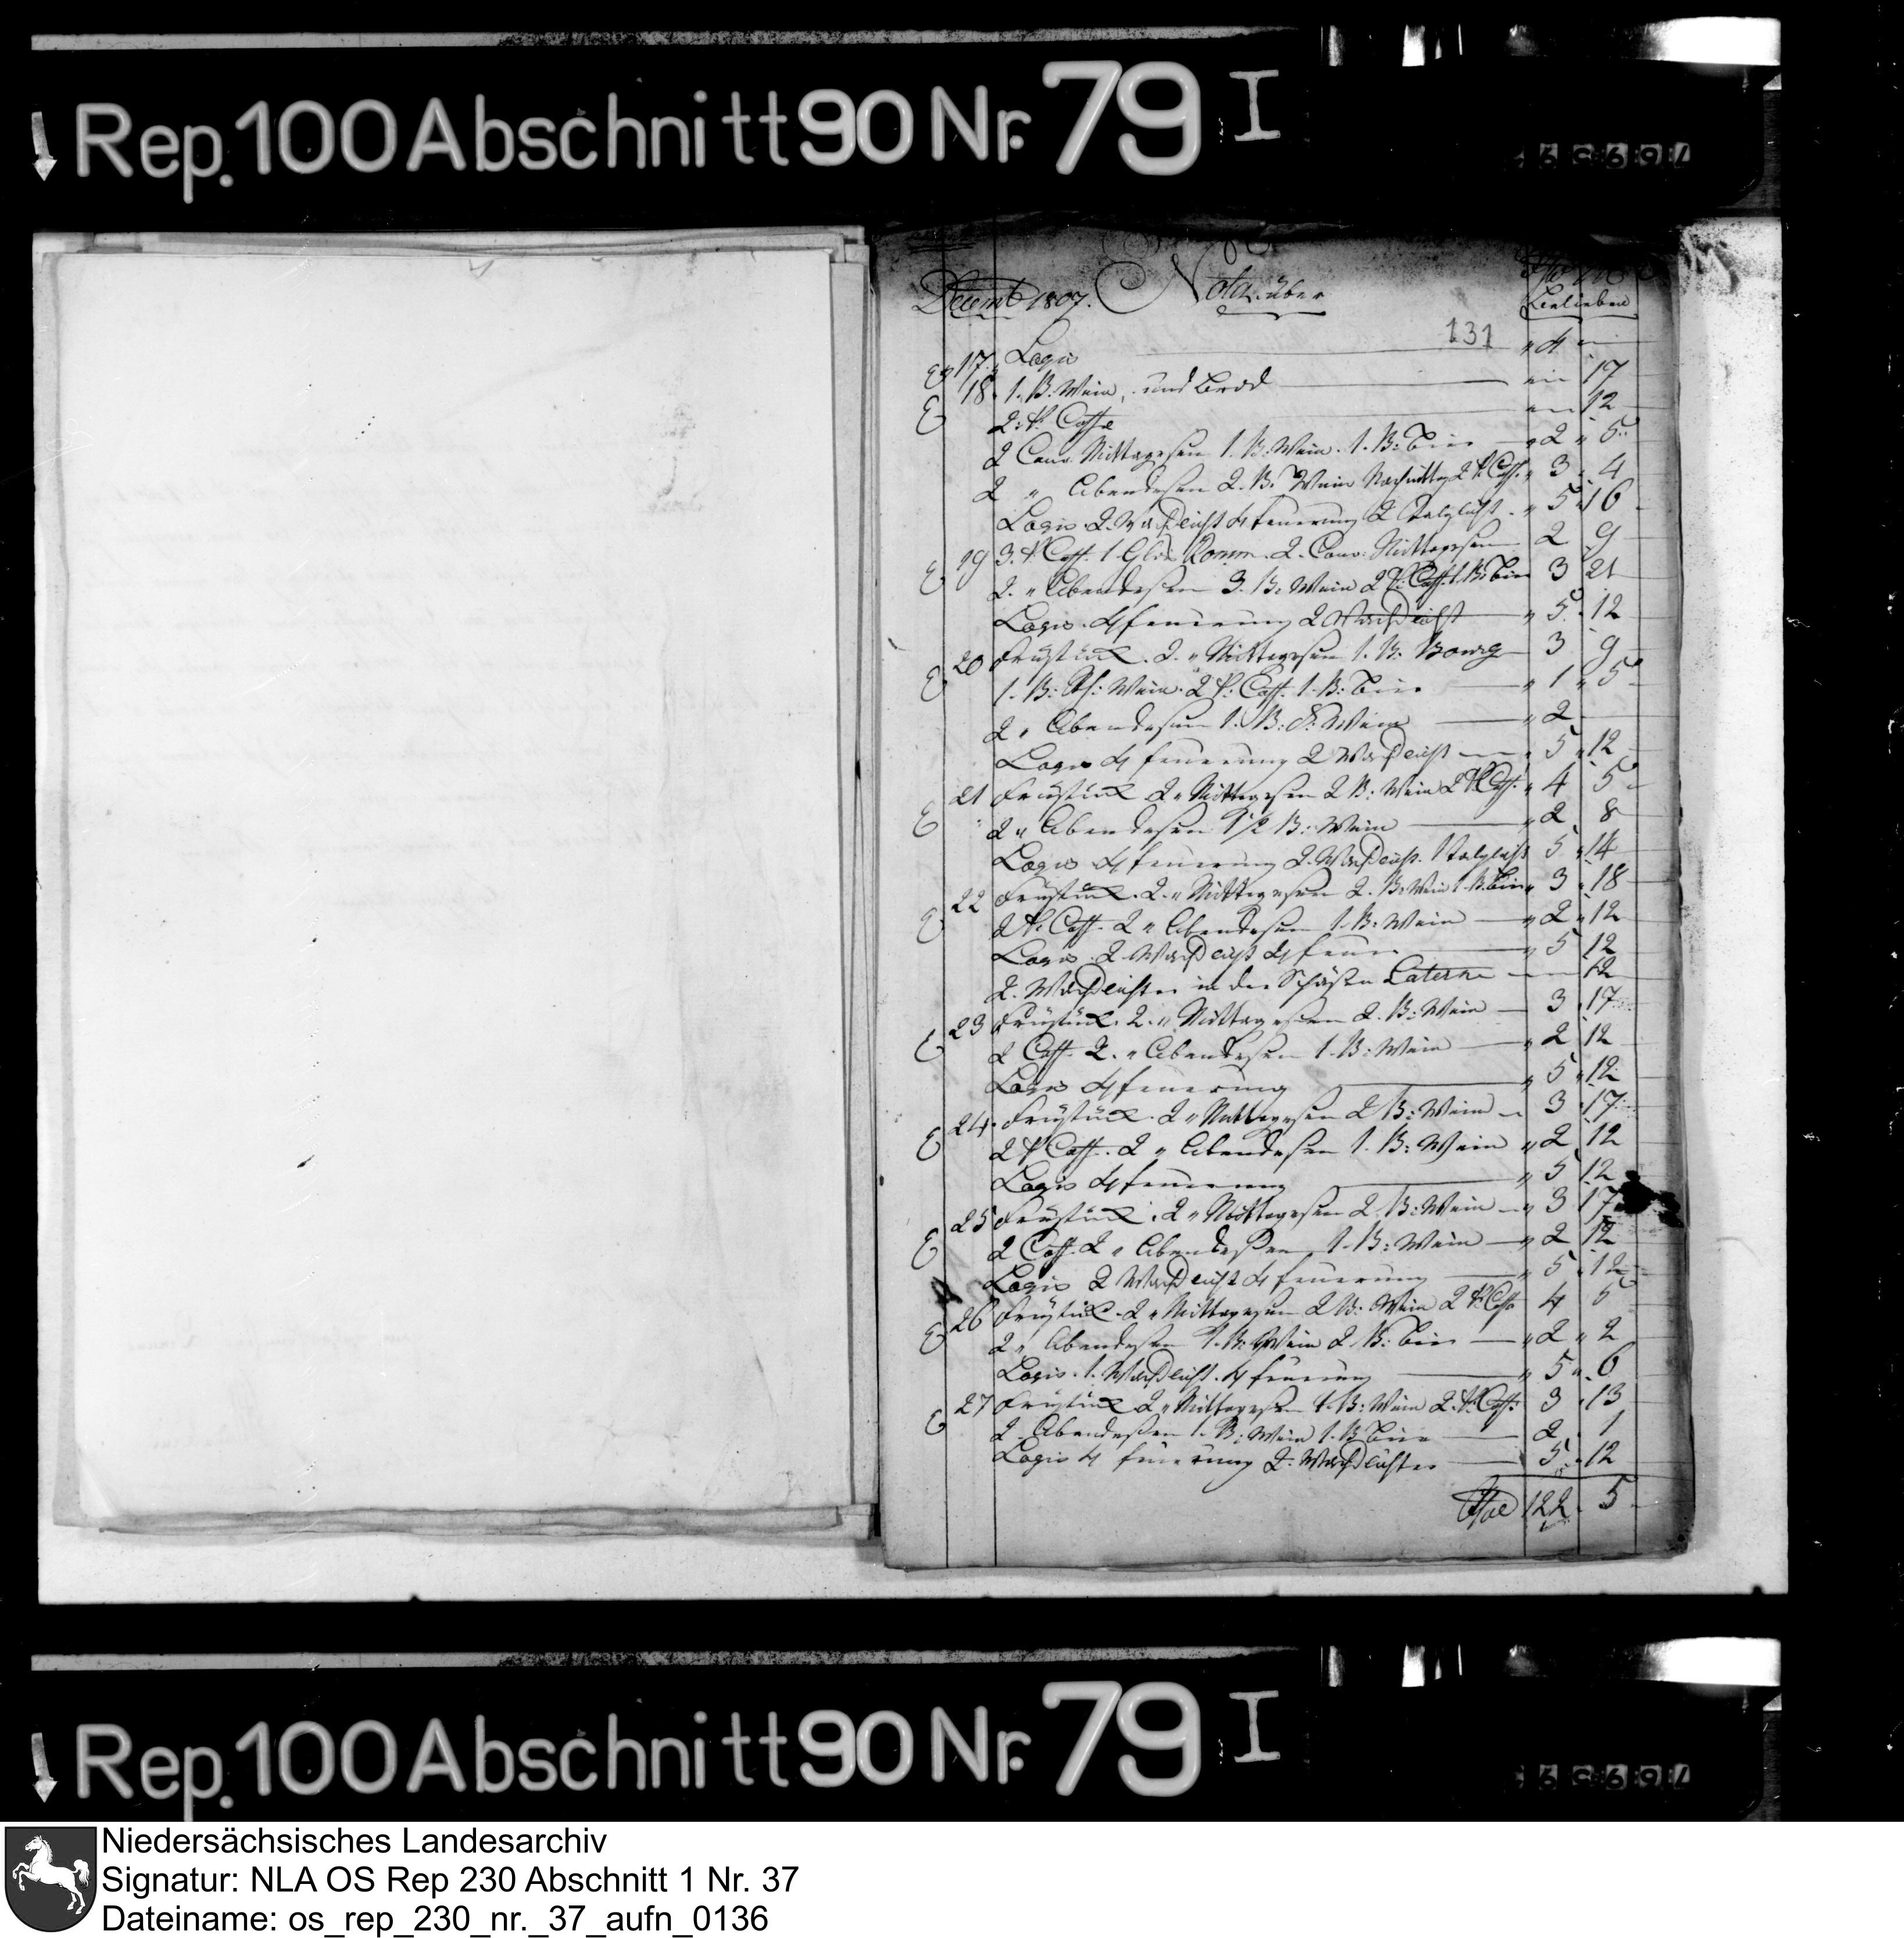 Rep. 100 Abschnitt 90 Nr. 79 I
Decemb 1807. Nota über
131
17. Logis 4
18. 1. B: Wein, und Brod 17
2. P. Caffe 12
2 Couv. Mittagesen 1. B: Wein. 1. B: Bier 2 5
2 " Abendesen 2. B: Wein Nachmittag 2 P. Caff. 3 4
Logis. 2. Wachslicht 4 feuerung 2 Talglicht 5 16
19 3. P. Caff. 1 Glas Romm. 2. Couv: Mittagesen 2 9
2. " Abendesen 3. B: Wein 2 P. Caff. 1. B: Bier 3 21
Logis. 4 feuerung 2 Wachslicht 5 12
20 Früstück. 2. " Mittagesen 1. B: Bourg 3 9
1. B: Wein. 2 P. Caff. 1. B: Bier 1 5
2 " Abendesen 1. B: Wein 2
Logis 4 feuerung 2 Wachslicht 5 12
21 Früstück 2 " Mittagesen 2 B: Wein 2 P. Caff. 4 5
2 " Abendesen 1/2 B: Wein 2 8
Logis 4 feuerung 2. Wachslicht. 1 Talglicht 5 14
22 Früstück. 2. " Mittagesen 2. B: Wein 1. B. Bier 3 18
2 P. Caff. 2 " Abendesen 1. B: Wein 2 12
Logis. 2. Wachslicht 4 feuer 5 12
2. Wachslichter in der Laterne 12
23 Früstück. 2. " Mittagesen 2. B: Wein 3 17
2 Caff. 2. " Abendesen 1. B: Wein 2 12
Logis 4 feuerung 5 12
24. Früstück. 2 " Mittagesen 2 B: Wein 3 17
2 P. Caff. 2 " Abendesen 1. B: Wein 2 12
Logis 4 feuerung 5 12
25 Früstück. 2 " Mittagesen 2. B: Wein 3 17
2 Caff. 2 " Abendeßen 1. B: Wein 2 12
Logis 2 Wachslicht 4 feuerung 5 12
26 Früstück. 2 " Mittagesen 2 B. Wein 2 P. Caffe 4 5
2 " Abendesen 1. B: Wein 2 B: Bier 2 2
Logis. 1. Wachslicht. 4 feuerung 5 6
27 Früstück 2 " Mittageßen 1. B: Wein 2. P. Caff. 3 13
2. Abendeßen 1. B: Wein 1. B Bier 2 1
Logis 4 feuerung 2. Wachslichter 5 12
122 5
Rep. 100 Abschnitt 90 Nr. 79 I
Niedersächsisches Landesarchiv
Signatur: NLA OS Rep 230 Abschnitt 1 Nr. 37
Dateiname: os_rep_230_nr._37_aufn_0136